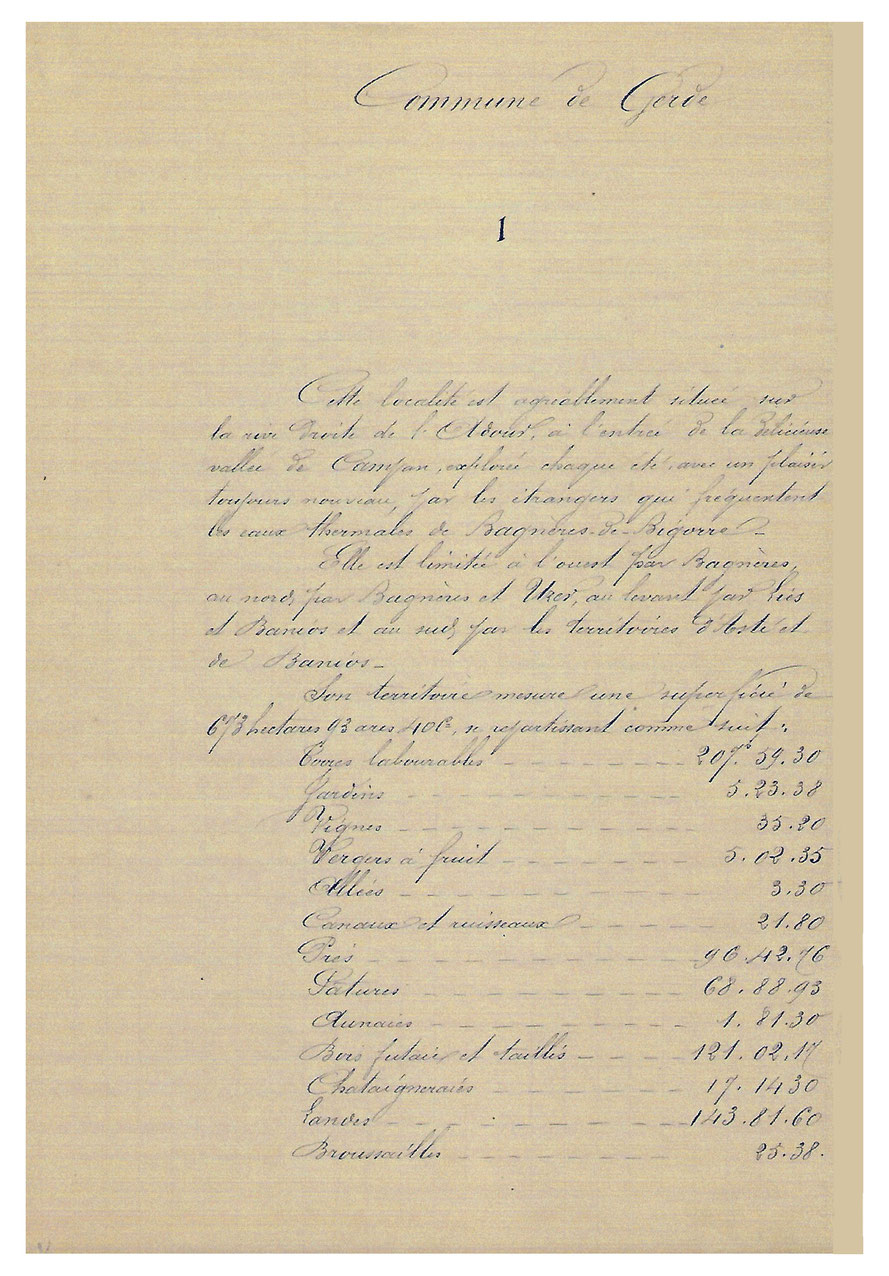 Commune de Gerde
1
Cette localité est agréablement située sur
la rive droite de l'Adour, à l'entrée de la délicieuse
vallée de Campan, explorée chaque été, avec un plaisir
toujours nouveau, par les étrangers qui fréquentent
les eaux thermales de Bagnères-de-Bigorre_
Elle est limitée à l'ouest par Bagnères,
au nord, par Bagnères et Uzer, au levant par Lies
et Banios et au sud, par les territoires d'Asté et
de Banios_
Son territoire mesure une superficie de
673 hectares 93 ares 40c, se repartissant comme suit:
Terres labourables _ _ _ _ _ _ 207h.59.30
Jardins _ _ _ _ _ _ _ _ _ 5.23.38
Vignes _ _ _ _ _ _ _ _ _ 35.20
Vergers à fruit _ _ _ _ _ _ 5.02.35
Allées _ _ _ _ _ _ _ _ _ 3.30
Canaux et ruisseaux _ _ _ _ 21.80
Prés _ _ _ _ _ _ _ _ _ _ 96.42.76
Patures _ _ _ _ _ _ _ _ 68.88.93
Aunaies _ _ _ _ _ _ _ _ 1.81.30
Bois futaie et taillis _ _ _ _ 121.02.17
Chataigneraies _ _ _ _ _ _ 17.1430
Landes _ _ _ _ _ _ _ _ _ 143.81.60
Broussailles _ _ _ _ _ _ _ 25.38.